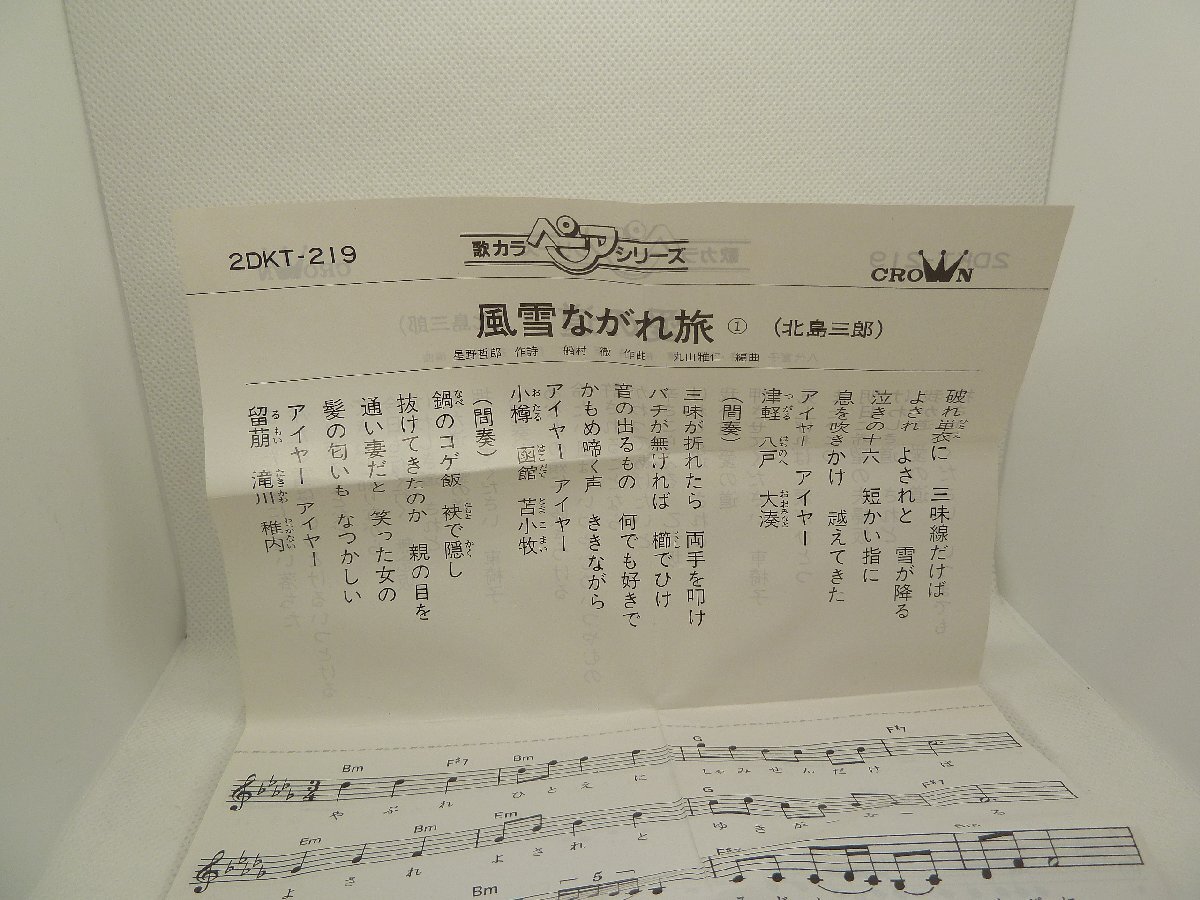 2DKT-219
歌カラ ペア シリーズ
CROWN
風雪ながれ旅 ① (北島三郎)
星野哲郎 作詩 船村 徹 作曲 丸山雅仁 編曲
破れ単衣に 三味線だけば
よされ よされと 雪が降る
泣きの十六 短かい指に
息を吹きかけ 越えてきた
アイヤー アイヤー
津軽 八戸 大湊
(間奏)
三味が折れたら 両手を叩け
バチが無ければ 櫛でひけ
音の出るもの 何でも好きで
かもめ啼く声 ききながら
アイヤー アイヤー
小樽 函館 苫小牧
(間奏)
鍋のコゲ飯 袂で隠し
抜けてきたのか 親の目を
通い妻だと 笑った女の
髪の匂いも なつかしい
アイヤー アイヤー
留萠 滝川 稚内
Bm F#7 Bm G F#7
やぶれ ひとえに しゃみせんだけ ば
Em Bm Em G F#7
よされ よされ と ゆきが
Bm
5